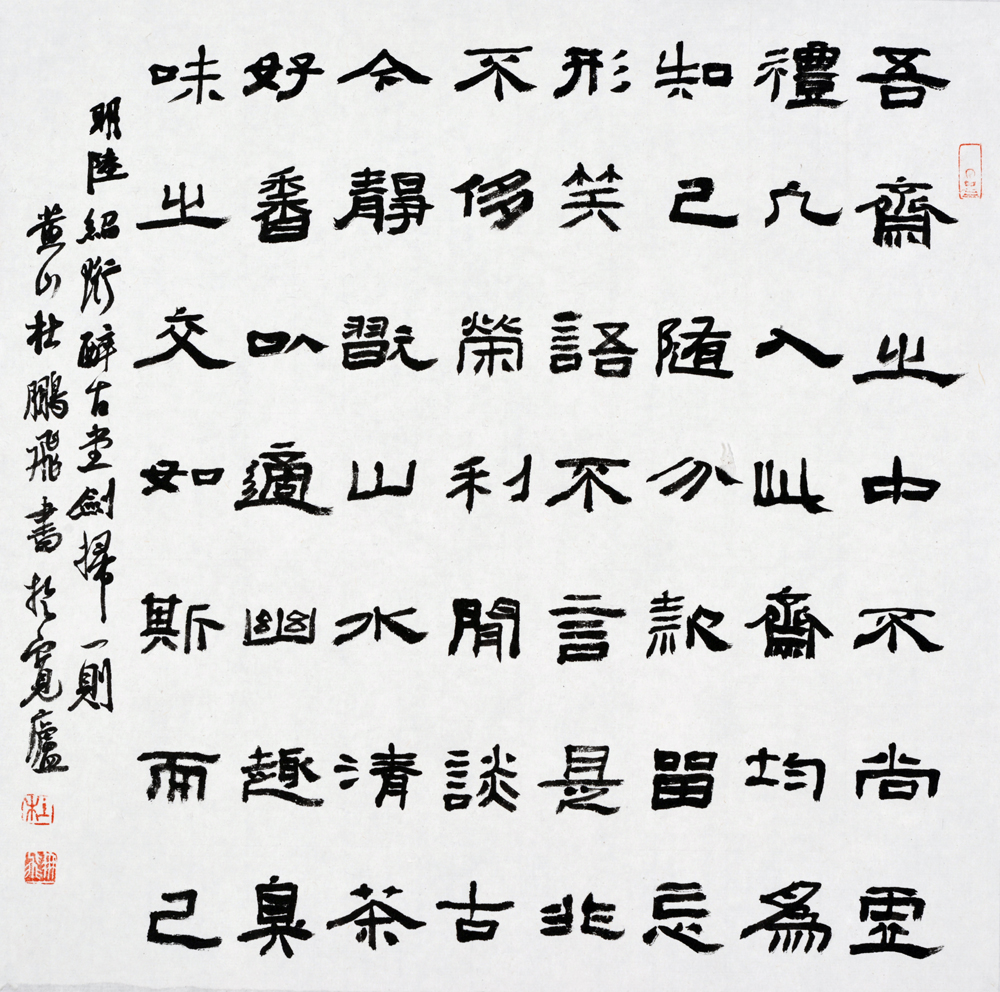 吾齋之中不尚虛
禮凡入此齋均為
知己隨分款留忘
形笑語不言是非
不侈榮利閒談古
今靜翫山水清茶
好香以適幽趣臭
味之交如斯而已
明陸紹珩醉古堂劍掃一則
黃山杜鵬飛書於寬廬